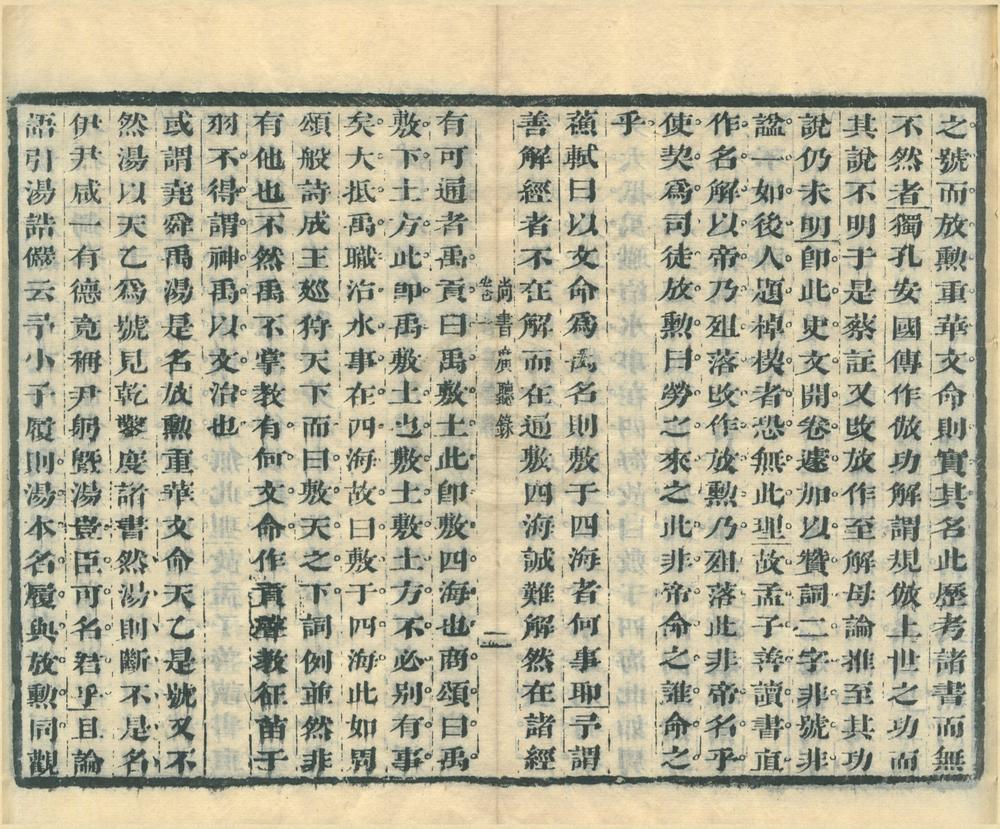 之號而放勲重華文命則實其名此歷考諸書而無
不然者獨孔安國傳作倣功解謂規倣上世之功而
其說不明于是蔡註又攺放作至解毋論推至其功
說仍未明卽此史文開卷遽加以贊詞二字非號非
諡一如後人題棹楔者恐無此理故孟子善讀書直
作名解以帝乃殂落攺作放勲乃殂落此非帝名乎
使契爲司徒放勲曰勞之來之此非帝命之誰命之
乎
蘓軾曰以文命爲禹名則敷于四海者何事耶予謂
善解經者不在解而在通敷四海誠難解然在諸經
尚書廣聽錄
卷二
二
有可通者禹貢曰禹敷土此卽敷四海也商頌曰禹
敷下土方此卽禹敷土也敷土敷土方不必别有事
矣大抵禹職治水事在四海故曰敷于四海此如周
頌般詩成王廵狩天下而曰敷天之下詞例並然非
有他也不然禹不掌教有何文命作貢聲教征苗于
羽不得謂神禹以文治也
或謂堯舜禹湯是名放勲重華文命天乙是號又不
然湯以天乙爲號見乾鑿度諸書然湯則斷不是名
伊尹咸一有德竟稱尹躬曁湯豈臣可名君乎且論
語引湯誥儼云予小子履則湯本名履與放勲同觀